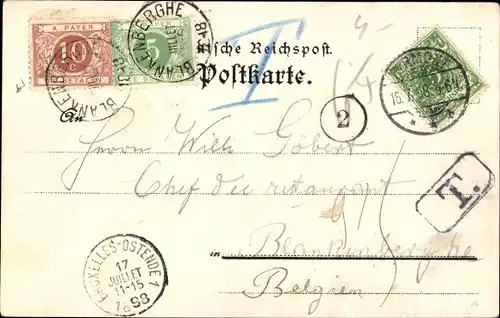 A PAYER
10
TE BETALEN
5
BLANKENBERGHE
T
4
Deutsche Reichspost.
Postkarte.
2
An
Herrn Willi Göbert
Chef de restaurant
T.
in Blankenberghe
Belgien
BRUXELLES-OSTENDE 1
17
JUILLET
11-15
1898